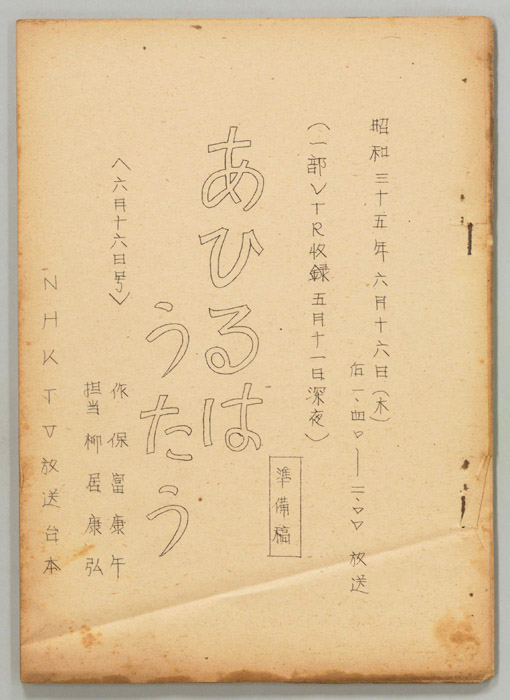 昭和三十五年六月十六日(木)
一、四〇――二、〇〇 放送
(一部VTR収録 五月十一日深夜)
準備稿
あひるは
うたう
〈六月十六日号〉
作 保富康午
担当 柳居康弘
NHKTV放送台本